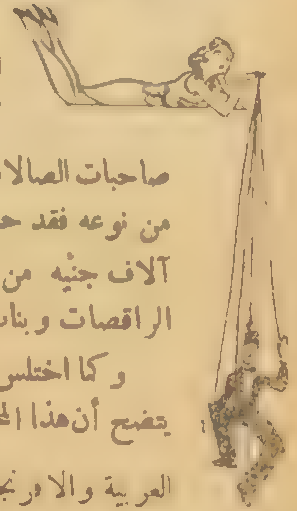 صاحبات الصالات
من نوعه فقد
آلاف جنيه من
الراقصات و
وكما اختلس
يتضح أن هذا
العربية والا